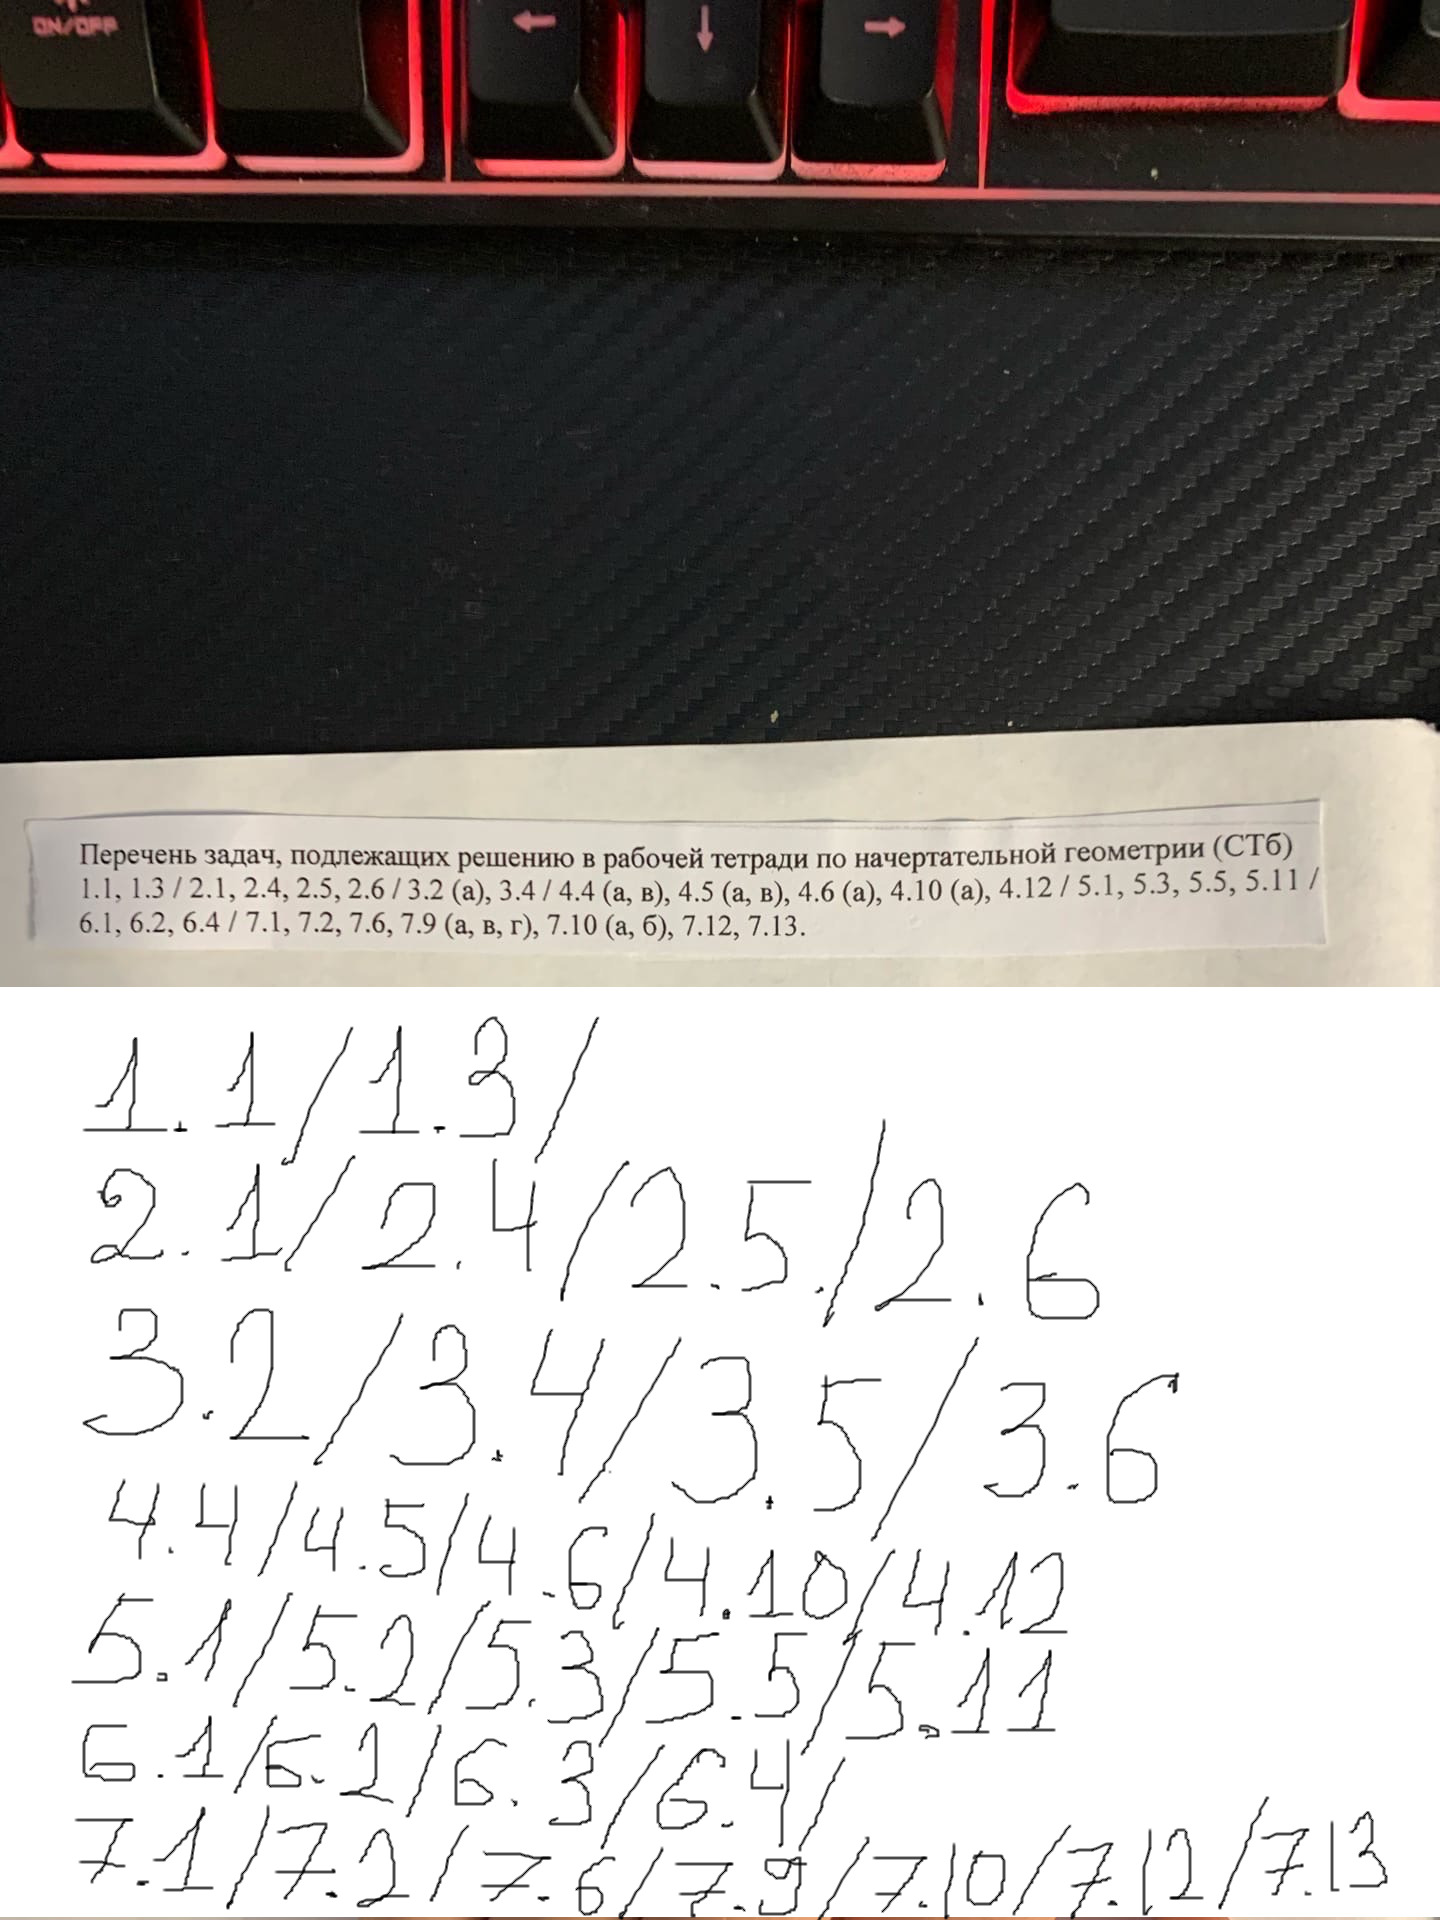 ON/OFF
← ↓ →
Перечень задач, подлежащих решению в рабочей тетради по начертательной геометрии (СТб)
1.1, 1.3 / 2.1, 2.4, 2.5, 2.6 / 3.2 (а), 3.4 / 4.4 (а, в), 4.5 (а, в), 4.6 (а), 4.10 (а), 4.12 / 5.1, 5.3, 5.5, 5.11 /
6.1, 6.2, 6.4 / 7.1, 7.2, 7.6, 7.9 (а, в, г), 7.10 (а, б), 7.12, 7.13.
1.1/1.3/
2.1/2.4/2.5./2.6
3.2/3.4/3.5/3.6
4.4/4.5/4.6/4.10/4.12
5.1/5.2/5.3/5.5/5.11
6.1/6.2/6.3/6.4/
7.1/7.2/7.6/7.9/7.10/7.12/7.13